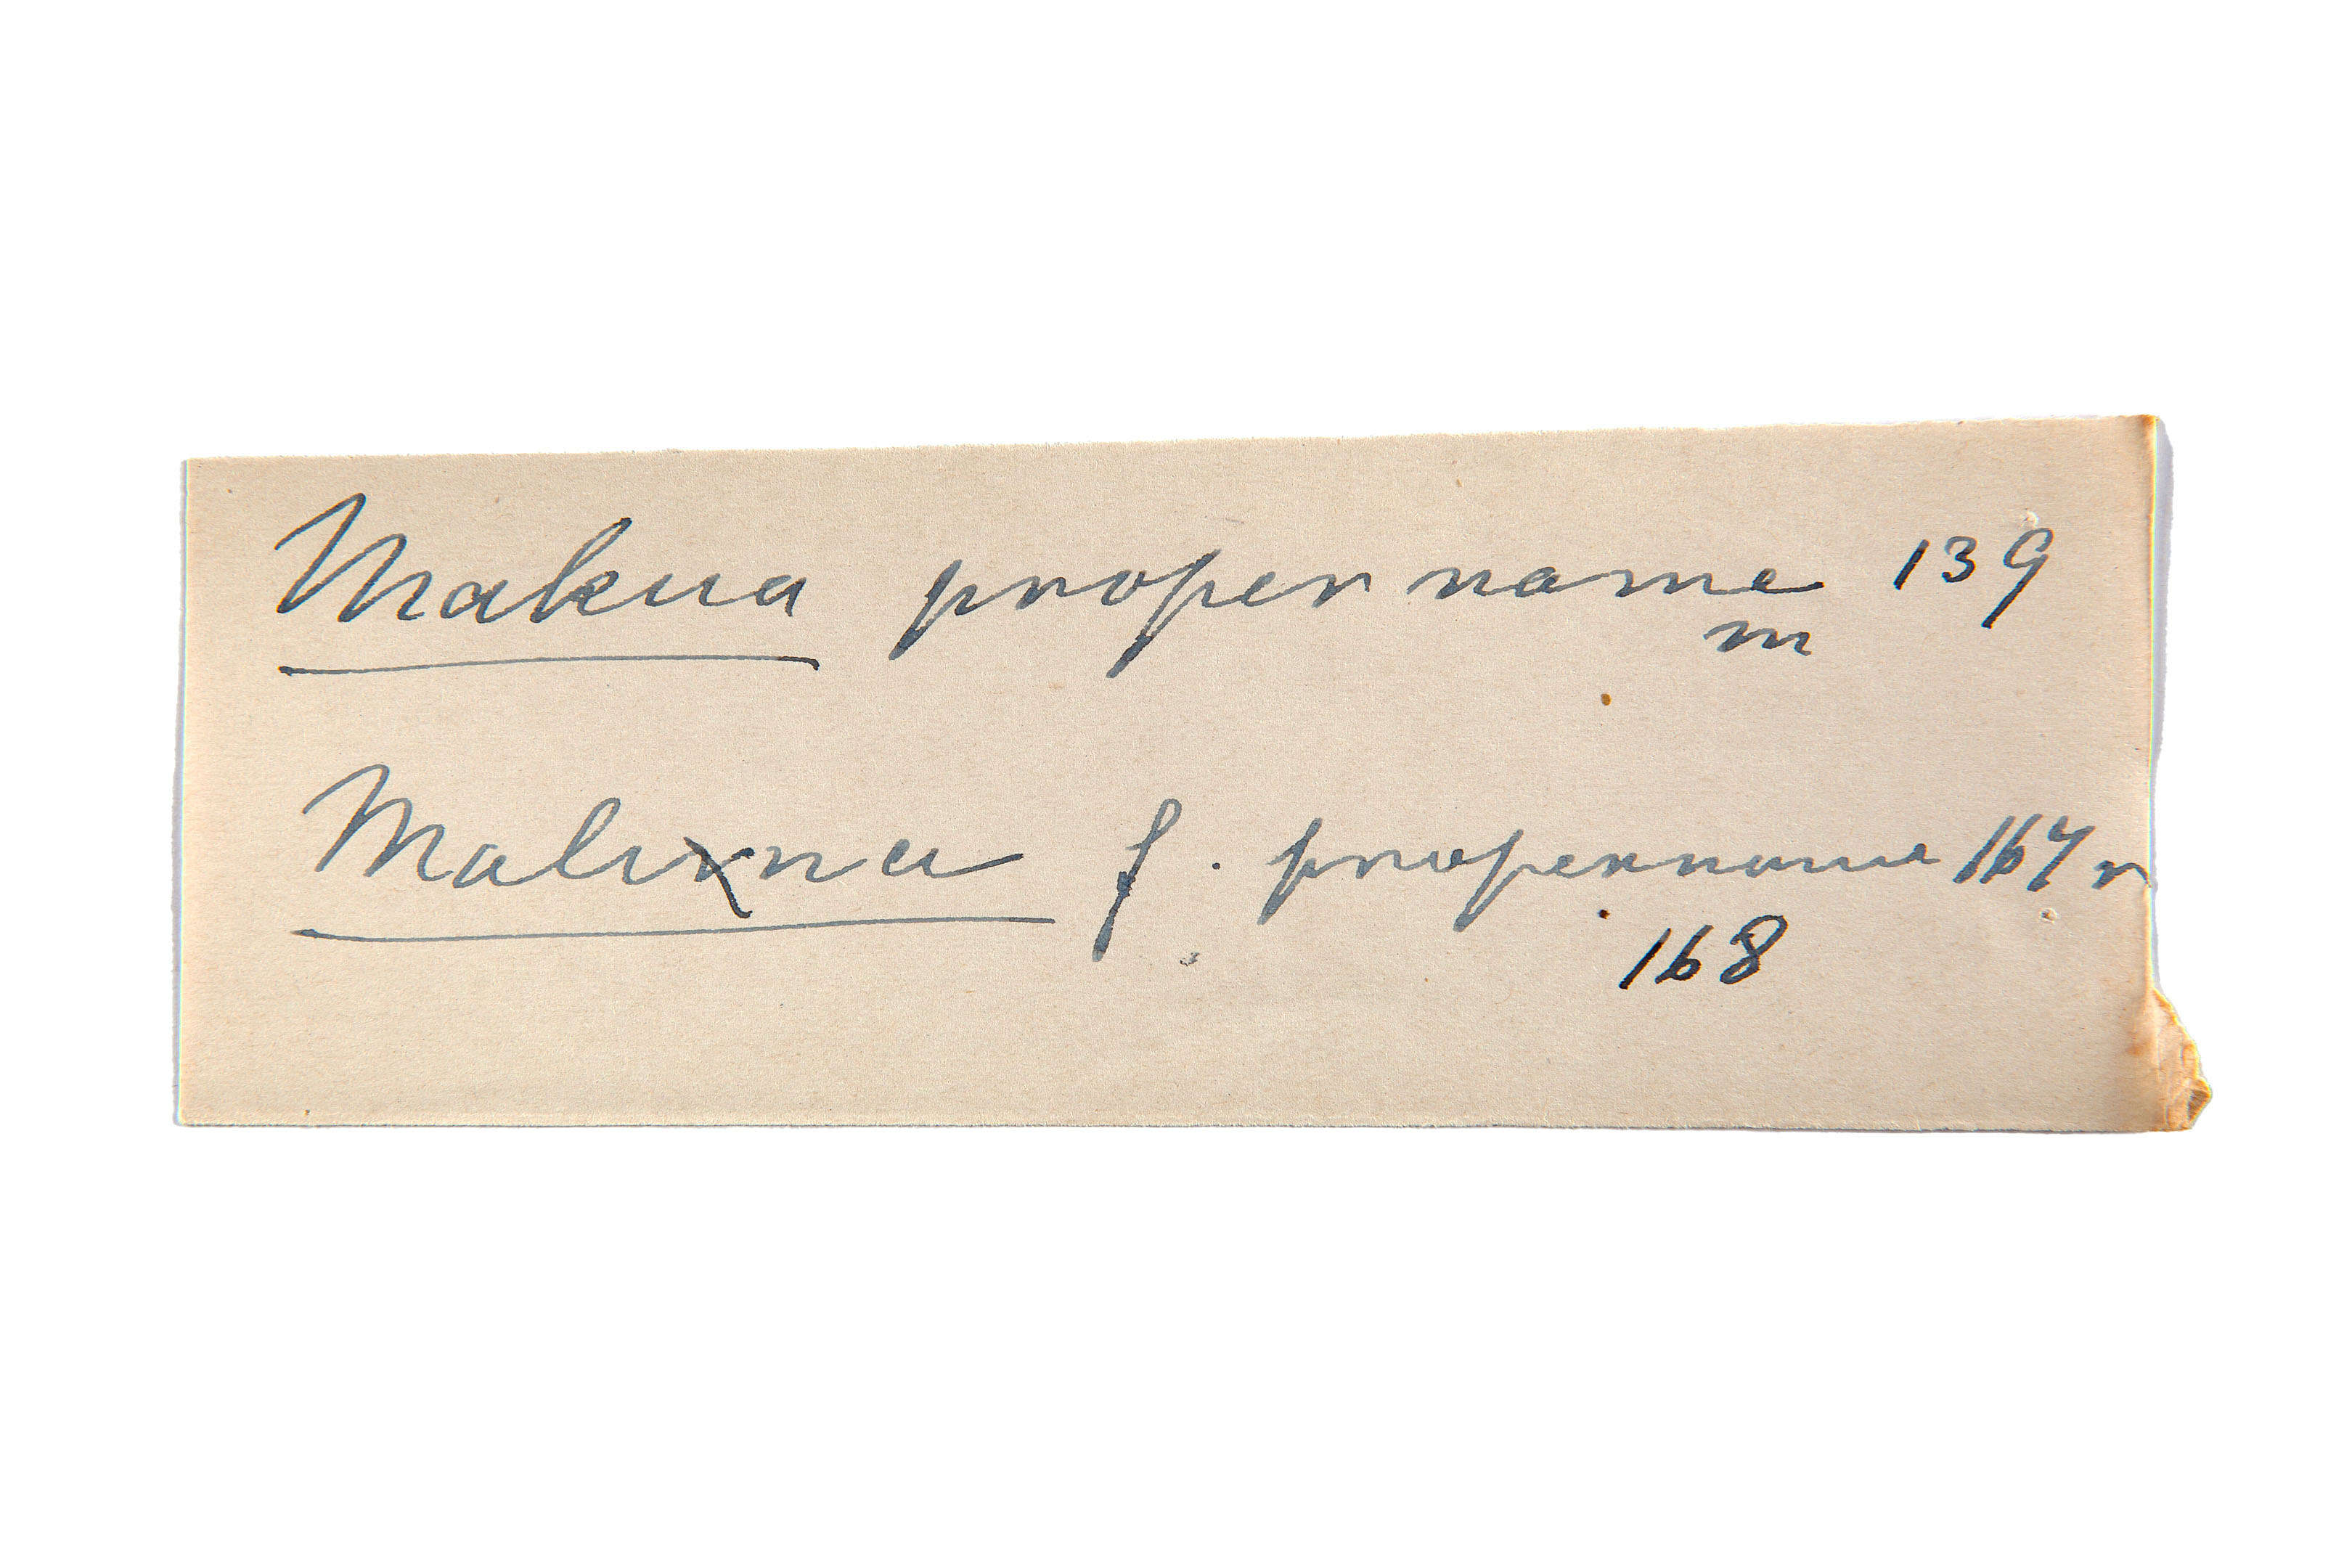 Makua proper name 139
m
Malixna f. proper name 167 r
168